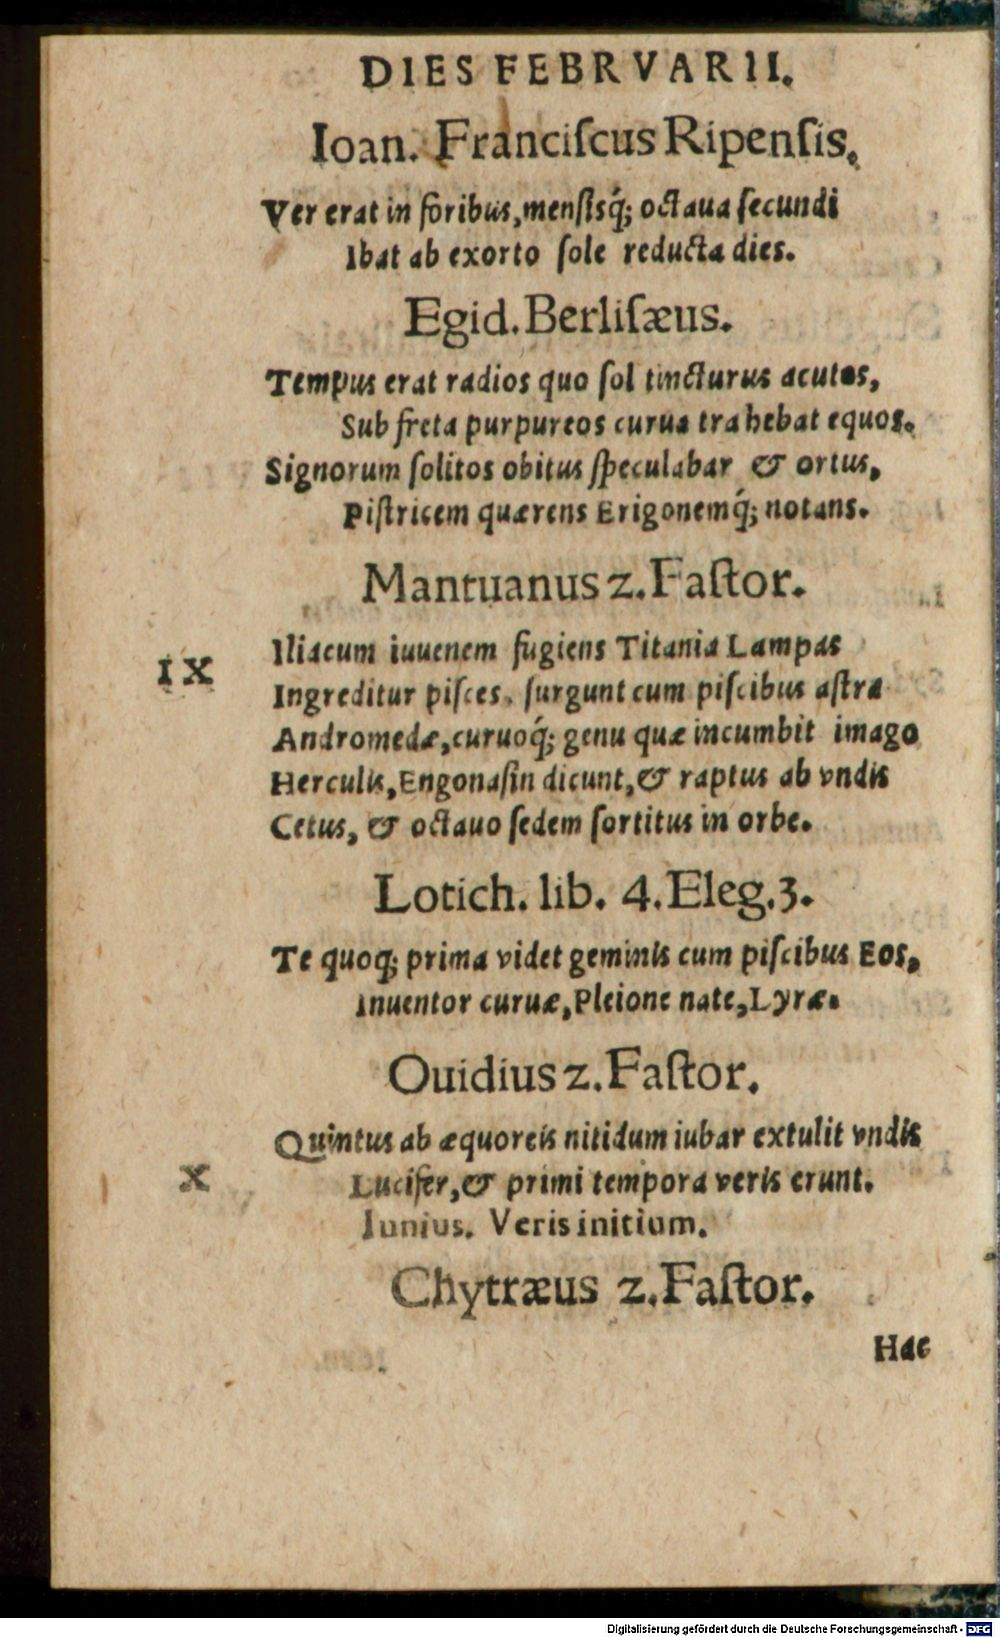 DIES FEBRVARII.
Ioan. Franciſcus Ripenſis.
Ver erat in foribus, menſisq́; octaua ſecundi
Ibat ab exorto ſole reducta dies.
Egid. Berliſæus.
Tempus erat radios quo ſol tincturus acutos,
Sub freta purpureos curua trahebat equos.
Signorum ſolitos obitus ſpeculabar & ortus,
Piſtricem quærens Erigonemq́; notans.
Mantuanus 2. Faſtor.
IX
Iliacum iuuenem fugiens Titania Lampas
Ingreditur piſces, ſurgunt cum piſcibus aſtra
Andromedæ, curuoq́; genu quæ incumbit imago
Herculis, Engonaſin dicunt, & raptus ab vndis
Cetus, & octauo ſedem ſortitus in orbe.
Lotich. lib. 4. Eleg. 3.
Te quoq; prima videt geminis cum piſcibus Eos,
Inuentor curuæ, Pleione nate, Lyræ.
Ouidius 2. Faſtor.
Quintus ab æquoreis nitidum iubar extulit vndis
X
Lucifer, & primi tempora veris erunt.
Iunius. Veris initium.
Chytræus 2. Faſtor.
Hac
Digitalisierung gefördert durch die Deutsche Forschungsgemeinschaft - DFG